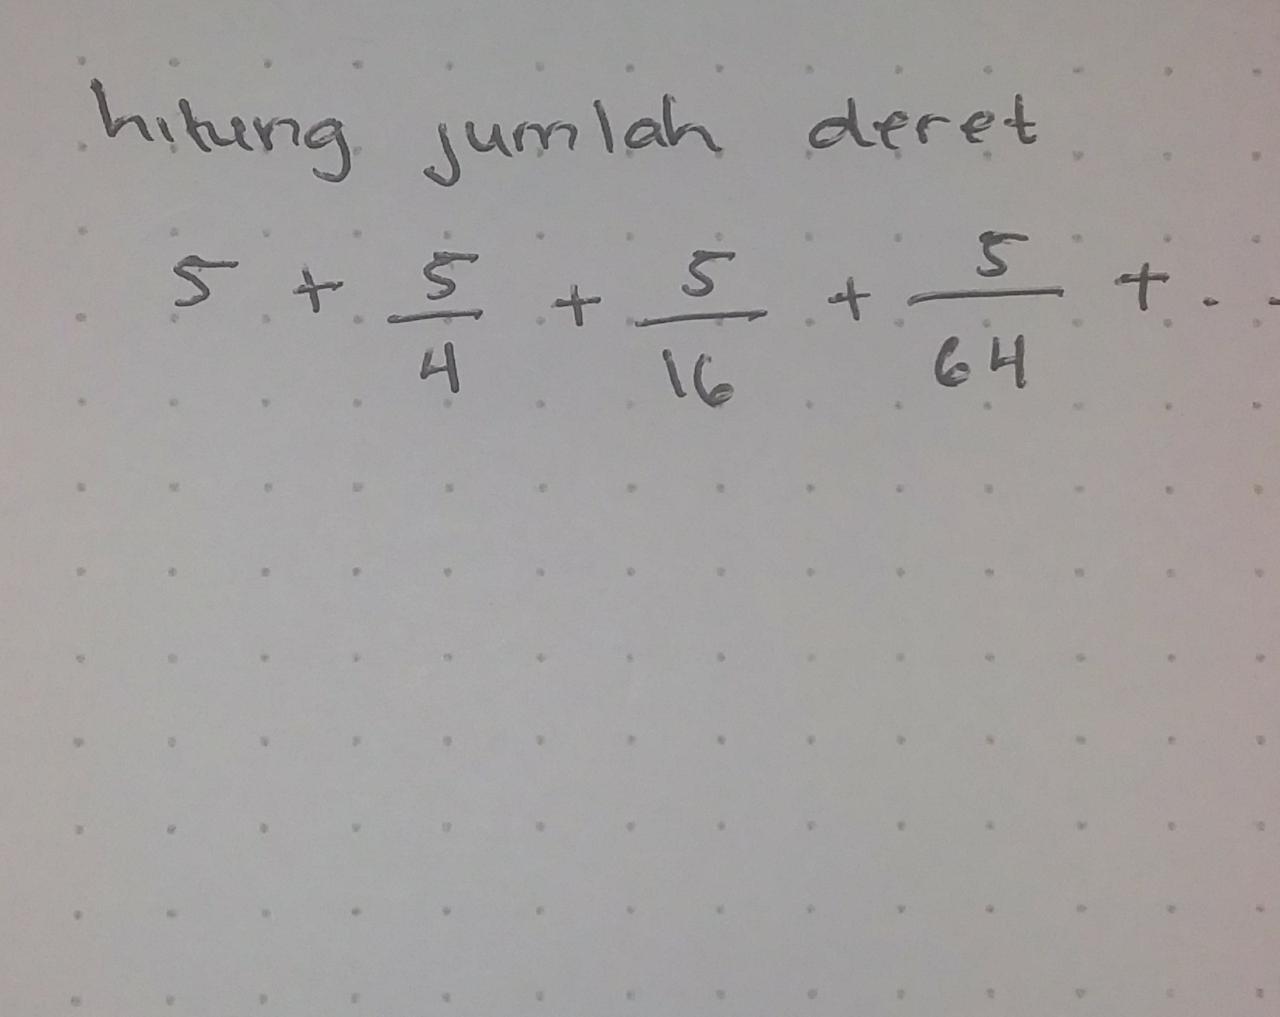 hitung jumlah deret
5 + 5/4 + 5/16 + 5/64 + . .